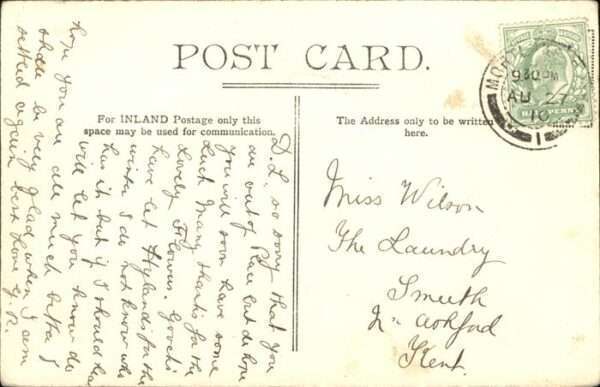 POST CARD.
For INLAND Postage only this
space may be used for communication.
The Address only to be written
here.
9.30 PM
AU
10
1
HALFPENNY
D.L. so sorry that you
are out of Place but do hope
you will soon have some
Luck Many thanks for the
Lovely Flowers.
have let Hylands for the
winter I do not know who
has it but if I should hear
will let you know do
hope you are all much better I
shall be very glad when I am
settled again best love G. R.
Miss Wilson
The Laundry
Smeeth
Nr Ashford
Kent.